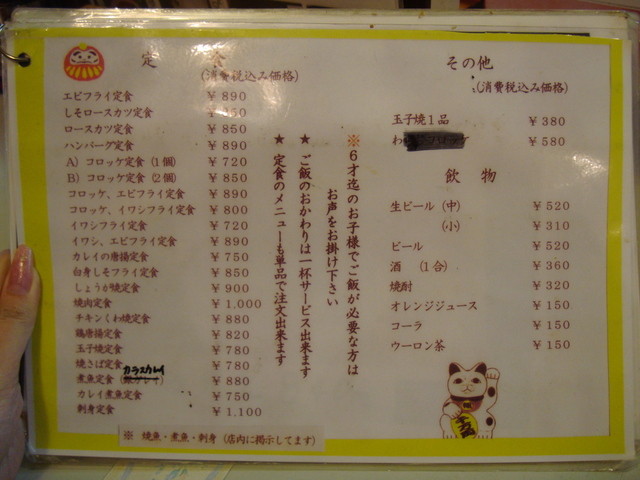 定 食
(消費税込み価格)
エビフライ定食 ￥890
しそロースカツ定食 ￥ 50
ロースカツ定食 ￥850
ハンバーグ定食 ￥890
A) コロッケ定食 (1個) ￥720
B) コロッケ定食 (2個) ￥850
コロッケ、エビフライ定食 ￥890
コロッケ、イワシフライ定食 ￥800
イワシフライ定食 ￥720
イワシ、エビフライ定食 ￥890
カレイの唐揚定食 ￥750
白身しそフライ定食 ￥850
しょうが焼定食 ￥900
焼肉定食 ￥1,000
チキンくわ焼定食 ￥880
鶏唐揚定食 ￥820
玉子焼定食 ￥780
焼さば定食 ￥780
カラスカレイ
煮魚定食 (銀ガレイ) ￥880
カレイ煮魚定食 ￥750
刺身定食 ￥1,100
※ 焼魚・煮魚・刺身 (店内に掲示してます)
※６才迄のお子様でご飯が必要な方は
お声をお掛け下さい
★ ご飯のおかわりは一杯サービス出来ます
★ 定食のメニューも単品で注文出来ます
その他
(消費税込み価格)
玉子焼１品 ￥380
わ ￥580
飲 物
生ビール (中) ￥520
(小) ￥310
ビール ￥520
酒 (1合) ￥360
焼酎 ￥320
オレンジジュース ￥150
コーラ ￥150
ウーロン茶 ￥150